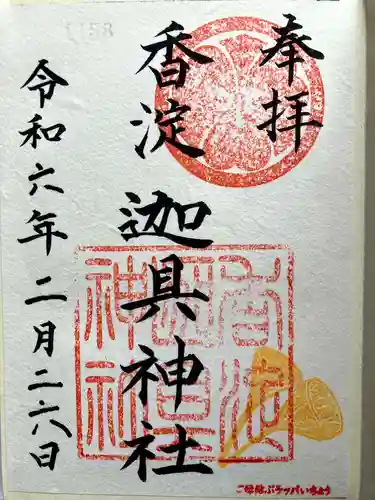 奉拝
香淀 迦具神社
令和六年二月二六日
香淀
迦具
神社
ご縁結ぶラッパいちょう